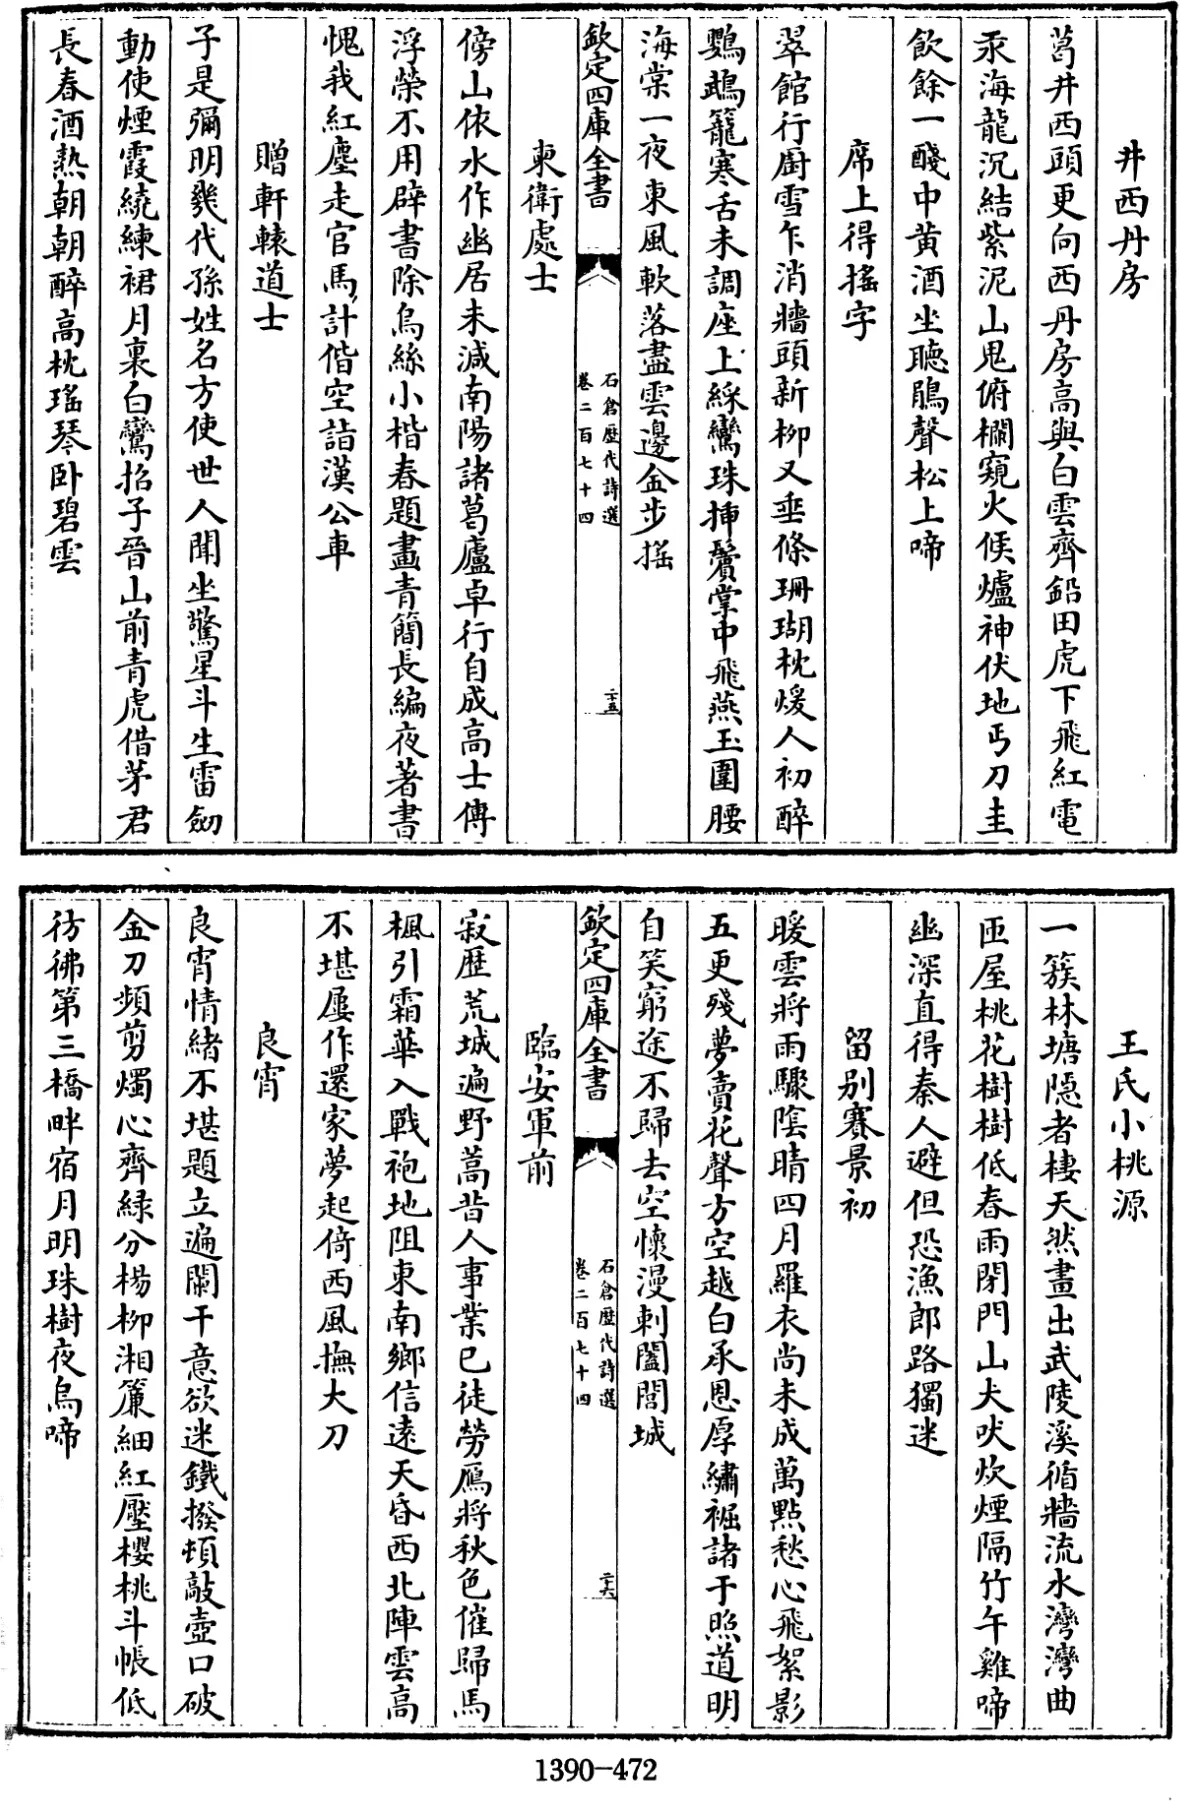 井西丹房
葛井西頭更向西丹房高與白雲齊鉛田虎下飛紅電
汞海龍沉結紫泥山鬼俯欄窺火候爐神伏地丐刀圭
飲餘一醆中黄酒坐聽鵑聲松上啼
席上得揺字
翠館行厨雪乍消牆頭新柳又垂條珊瑚枕煖人初醉
鸚鵡籠寒舌未調座上綵鸞珠揷鬢掌中飛燕玉圍腰
海棠一夜東風軟落盡雲邊金步揺
欽定四庫全書
石倉歷代詩選
卷二百七十四
二十五
柬衛處士
傍山依水作幽居未減南陽諸葛廬卓行自成高士傳
浮榮不用辟書除烏絲小楷春題畫青簡長編夜著書
愧我紅塵走官馬計偕空詣漢公車
贈軒轅道士
子是彌明幾代孫姓名方使世人聞坐驚星斗生雷劒
動使煙霞繞練裙月裏白鸞招子晉山前青虎借茅君
長春酒熟朝朝醉高枕瑤琴卧碧雲
王氏小桃源
一簇林塘隱者棲天然畫出武陵溪循牆流水灣灣曲
匝屋桃花樹樹低春雨閉門山犬吠炊煙隔竹午雞啼
幽深直得秦人避但恐漁郎路獨迷
留别賽景初
暖雲將雨驟隂晴四月羅衣尚未成萬點愁心飛絮影
五更殘夢賣花聲方空越白承恩厚繡裾諸于照道明
自笑窮途不歸去空懷漫刺闔閭城
欽定四庫全書
石倉歷代詩選
卷二百七十四
二十六
臨安軍前
寂歴荒城遍野蒿昔人事業已徒勞鴈將秋色催歸馬
楓引霜華入戰袍地阻東南鄉信逺天昏西北陣雲高
不堪屢作還家夢起倚西風撫大刀
良宵
良宵情緒不堪題立遍闌干意欲迷鐵撥頓敲壺口破
金刀頻剪燭心齊緑分楊柳湘簾細紅壓櫻桃斗帳低
彷彿第三橋畔宿月明珠樹夜烏啼
1390-472